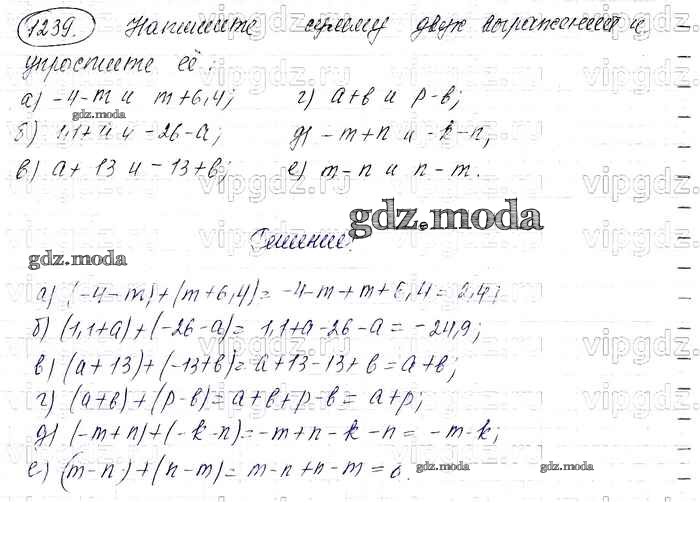 1239. Напишите сумму двух выражений и
упростите её:
а) -4-m и m+6,4; г) a+b и p-b;
gdz.moda
б) 1,1+a и -26-a; д) -m+n и -k-n;
в) a+13 и -13+b; е) m-n и n-m.
gdz.moda
Решение:
gdz.moda
а) (-4-m)+(m+6,4)= -4-m+m+6,4=2,4;
б) (1,1+a)+(-26-a)= 1,1+a-26-a= -24,9;
в) (a+13)+(-13+b)=a+13-13+b=a+b;
г) (a+b)+(p-b)=a+b+p-b= a+p;
д) (-m+n)+(-k-n)=-m+n-k-n= -m-k;
е) (m-n)+(n-m)= m-n+n-m=0.
gdz.moda gdz.moda